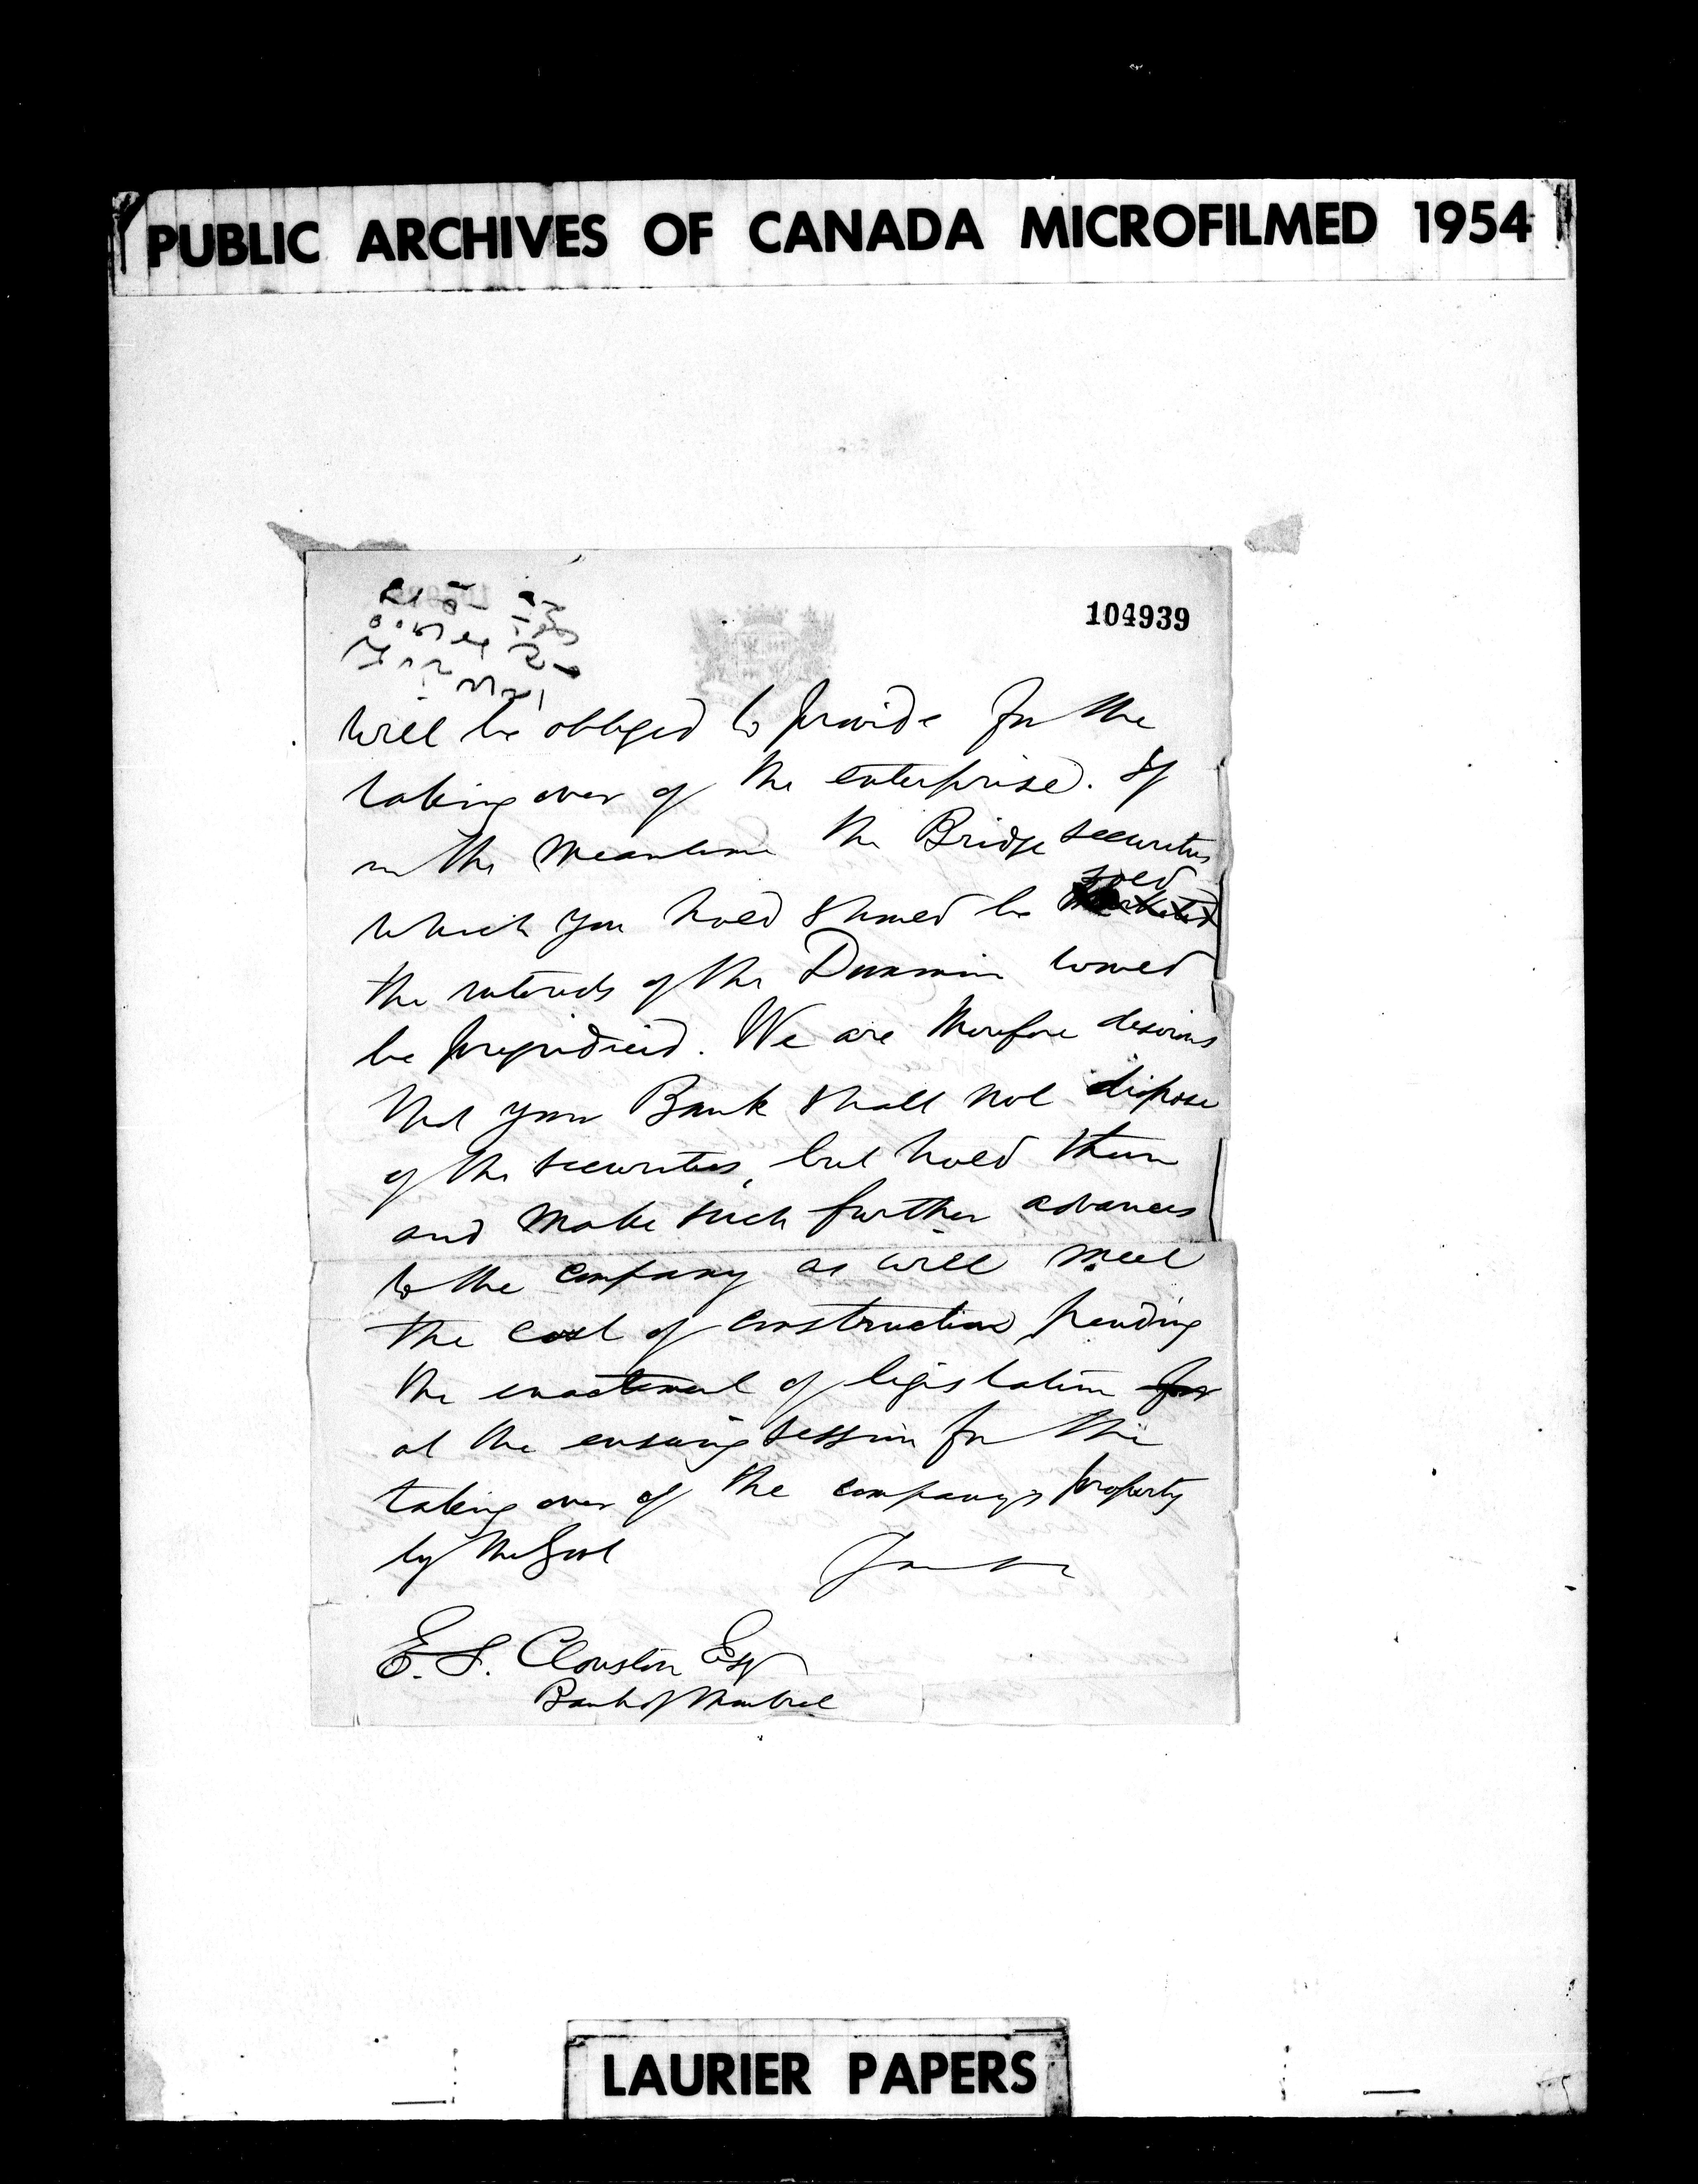 PUBLIC ARCHIVES OF CANADA MICROFILMED 1954
104939
will be obliged to provide for the
taking over of the enterprise. If
in the meantime the Bridge securities
sold
which you hold should be marketed
the interests of the Dominion would
be prejudiced. We are therefore desirous
that your Bank shall not dispose
of the securities, but hold them
and make such further advances
to the company as will meet
the cost of construction, pending
the enactment of legislation for
at the ensuing session for the
taking over of the company's property
by the Govt
E. S. Clouston Esq
Bank of Montreal
LAURIER PAPERS